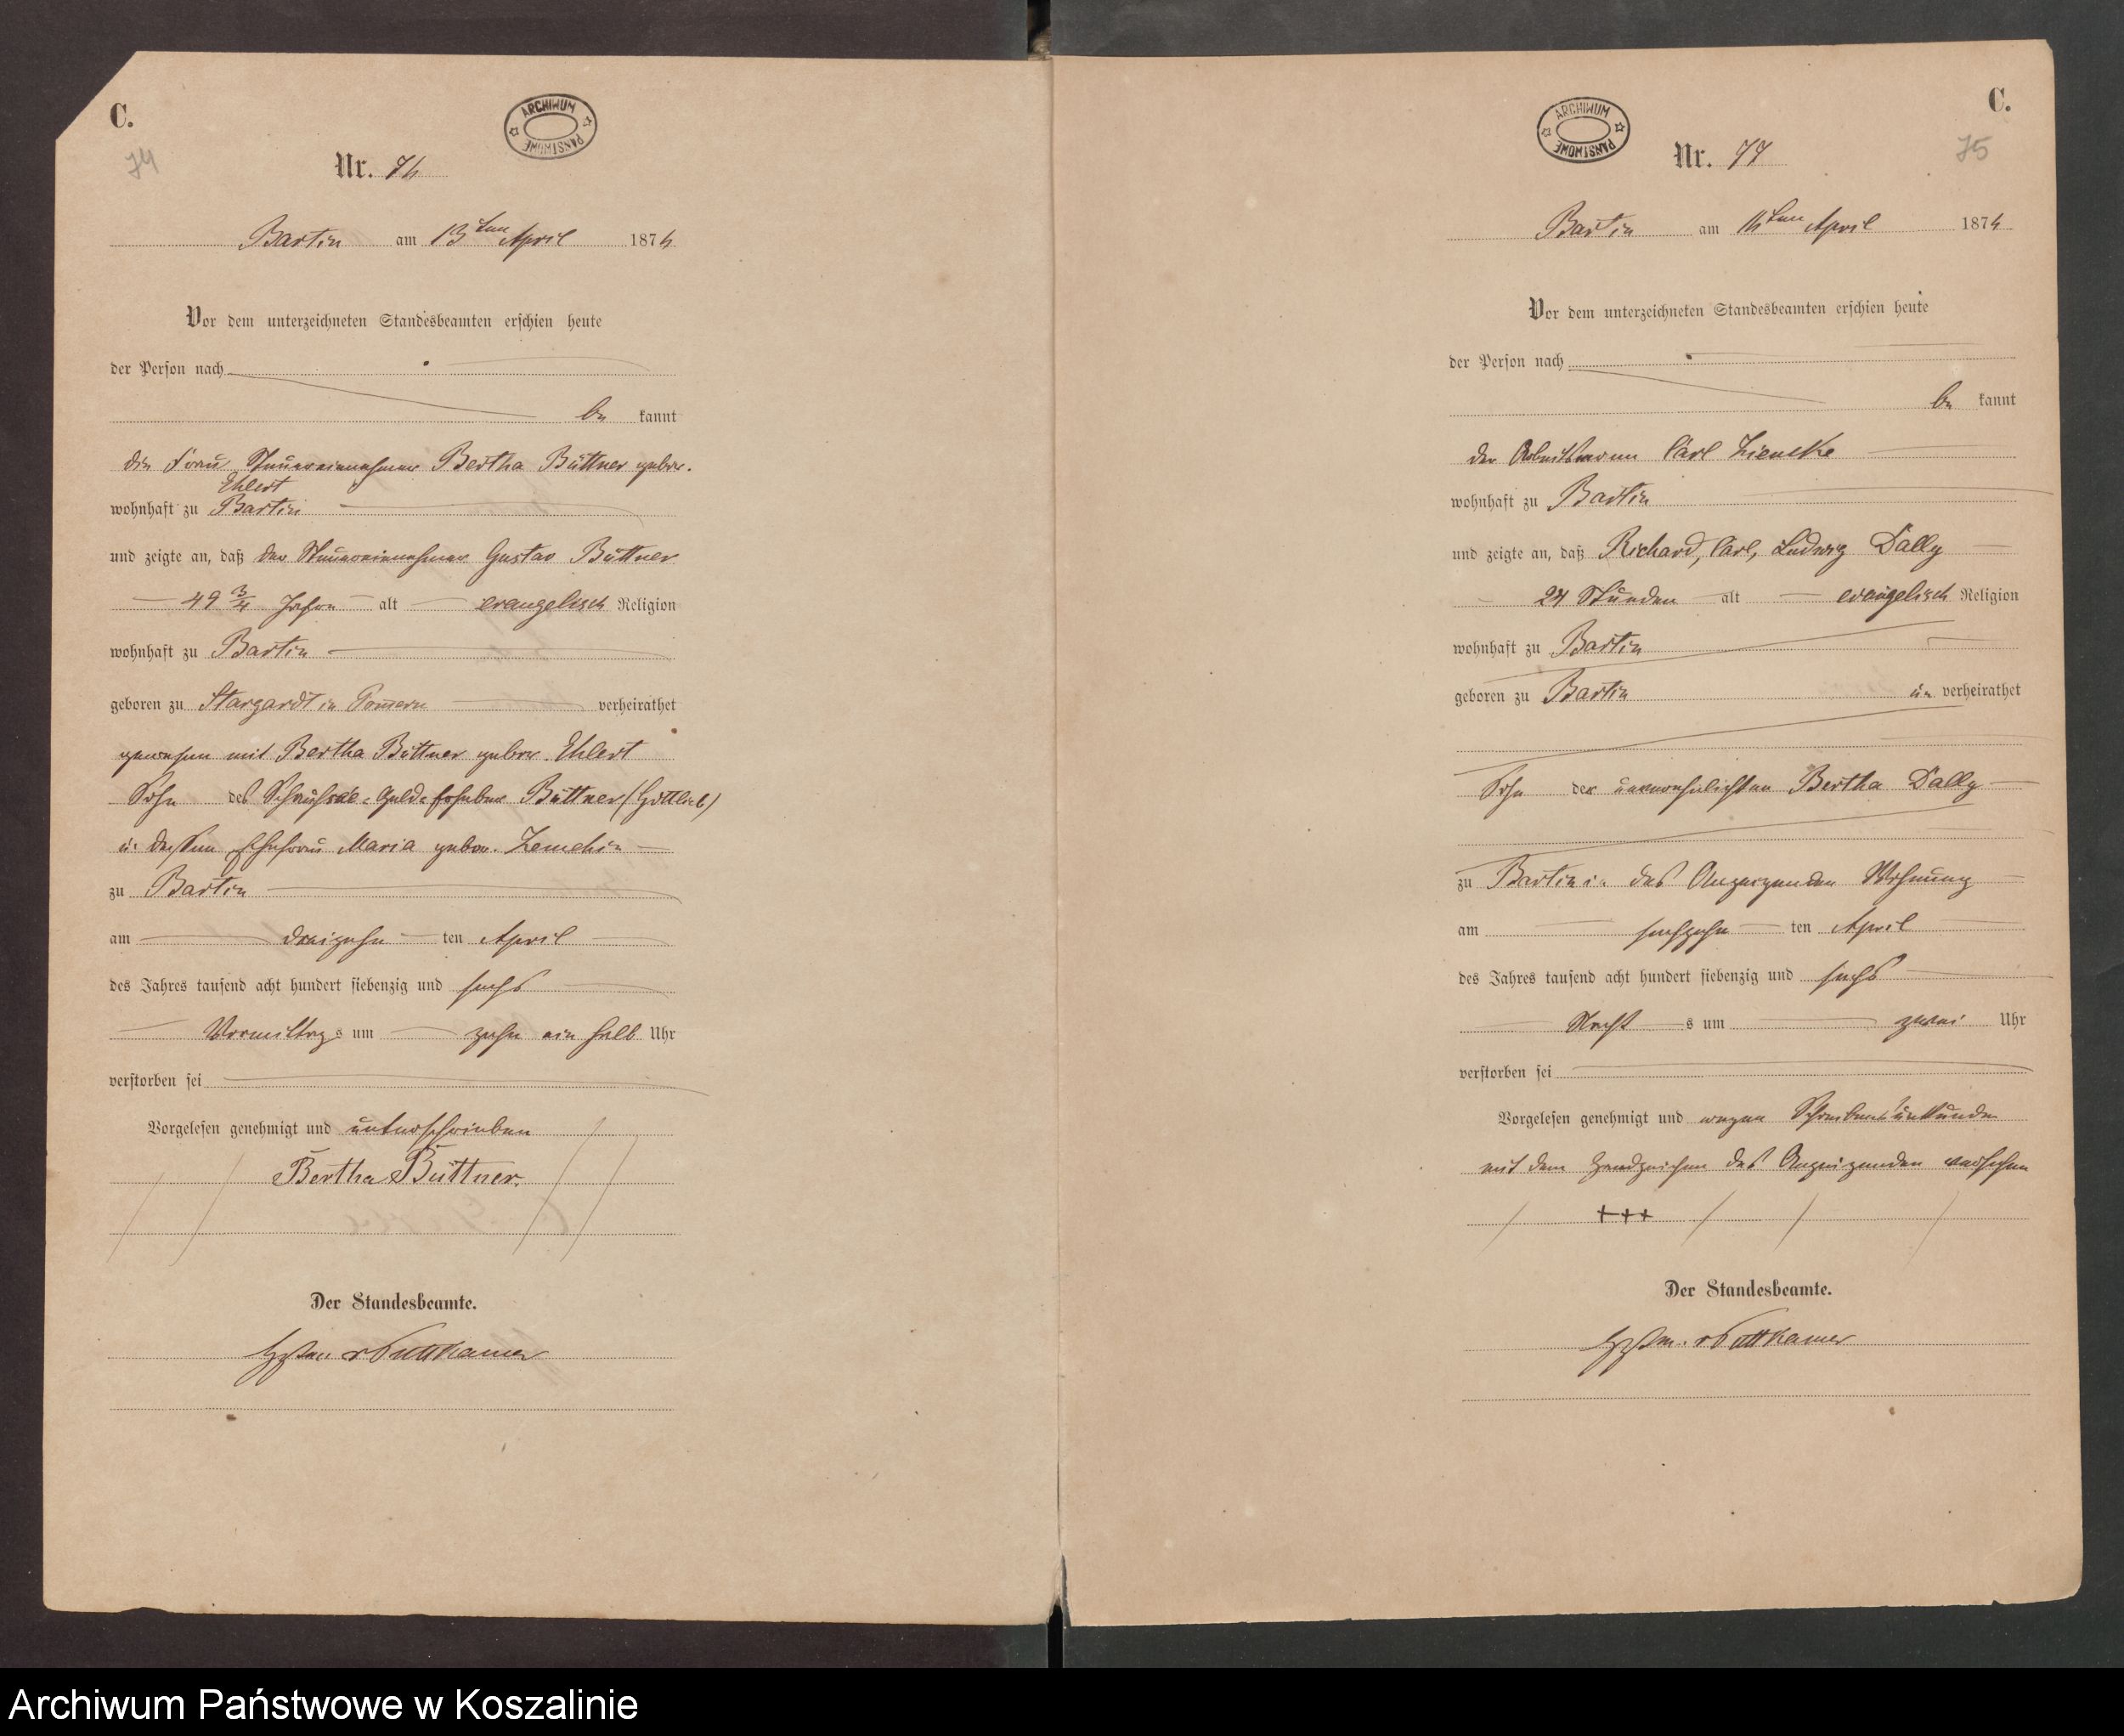 C.
ARCHIWUM PAŃSTWOWE
74
Nr. 76
Bartin am 13ten April 1876
Vor dem unterzeichneten Standesbeamten erschien heute
der Person nach
be kannt
die Frau Steuereinnehmer Bertha Büttner gebor.
Ehlert
wohnhaft zu Bartin
und zeigte an, daß der Steuereinnehmer Gustav Büttner
49 3/4 Jahre alt evangelisch Religion
wohnhaft zu Bartin
geboren zu Stargardt in Pommern verheirathet
gewesen mit Bertha Büttner gebor. Ehlert
Sohn des Büttner (Gottlieb)
u. dessen Ehefrau Maria gebor.
zu Bartin
am dreizehn ten April
des Jahres tausend acht hundert siebenzig und sechs
Vormittags um zehn ein halb Uhr
verstorben sei
Vorgelesen genehmigt und unterschrieben
Bertha Büttner.
Der Standesbeamte.
v Puttkamer
C.
ARCHIWUM PAŃSTWOWE
75
Nr. 77
Bartin am 16ten April 1876
Vor dem unterzeichneten Standesbeamten erschien heute
der Person nach
be kannt
der Arbeitsmann Carl Ziemke
wohnhaft zu Bartin
und zeigte an, daß Richard, Carl, Ludwig Dally
24 Stunden alt evangelisch Religion
wohnhaft zu Bartin
geboren zu Bartin un verheirathet
Sohn der unverehelichten Bertha Dally
zu Bartin in des Anzeigenden Wohnung
am sechzehn ten April
des Jahres tausend acht hundert siebenzig und sechs
Nacht s um zwei Uhr
verstorben sei
Vorgelesen genehmigt und wegen Schreibensunkunde
mit dem Handzeichen des Anzeigenden versehen
+++
Der Standesbeamte.
v Puttkamer
Archiwum Państwowe w Koszalinie